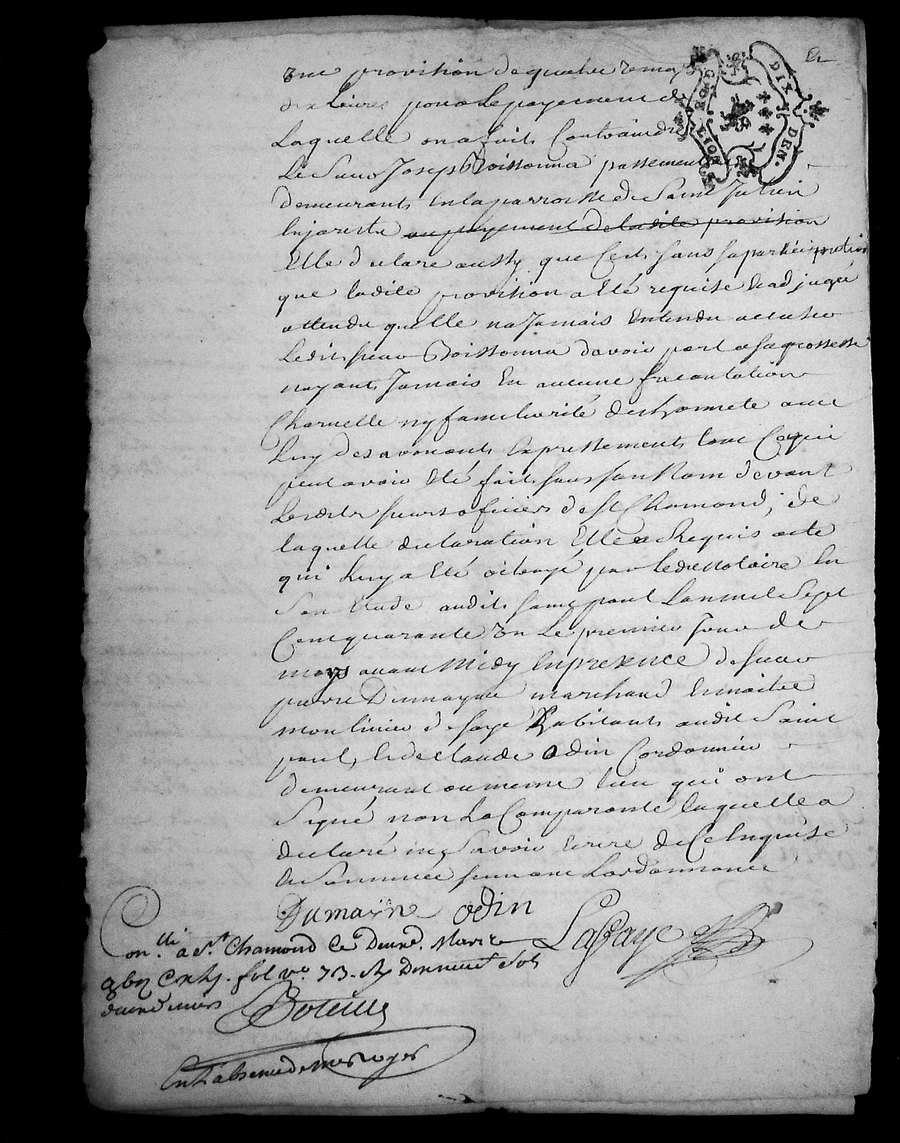 GEN. LION DIX DEN.
une provision de quatre
dix Livres pour Le payement de
Laquelle on a fait Contraindre
Le Sieur Joseph Boissonna passement
demeurant En la parroisse de Saint Julien
En jarests au payement de ladite provision
Elle declare aussy que Cest sans sa participation
que ladite provision a Eté requise Et adjugée
attendu quelle na Jamais Entendu accuser
Ledit sieur Boissonna davoir part a sa grossesse
nayant Jamais Eu aucune frecantation
Charnelle ny familiarité deshonnete avec
Luy desavouant Expressement tout Ce qui
peut avoir Eté fait sous son Nom devant
Lesdits sieurs officiers de St Chamond, de
laquelle declaration Elle a Requis acte
qui Luy a Eté octroyé par Ledit Notaire En
son Etude audit saint paul Lan mil Sept
Cent quarante un Le premier Jour de
mars avant Midy En presence de sieur
pierre Dumayne marchand Et maitre
moulinier de soye habitant audit Saint
paul, Et de Claude Odin Cordonnier
demeurant au meme lieu qui ont
Signé non La Comparante laquelle a
declaré ne Savoir Ecrire de Ce Enquise
Et Sommée suivant Lordonnance
Dumaÿne odin
Lafaye
Con.lle a St. Chamond Ce Deuxe. Mars
fol vo. 73. Sols
Boteill
En Labsence de mr royer